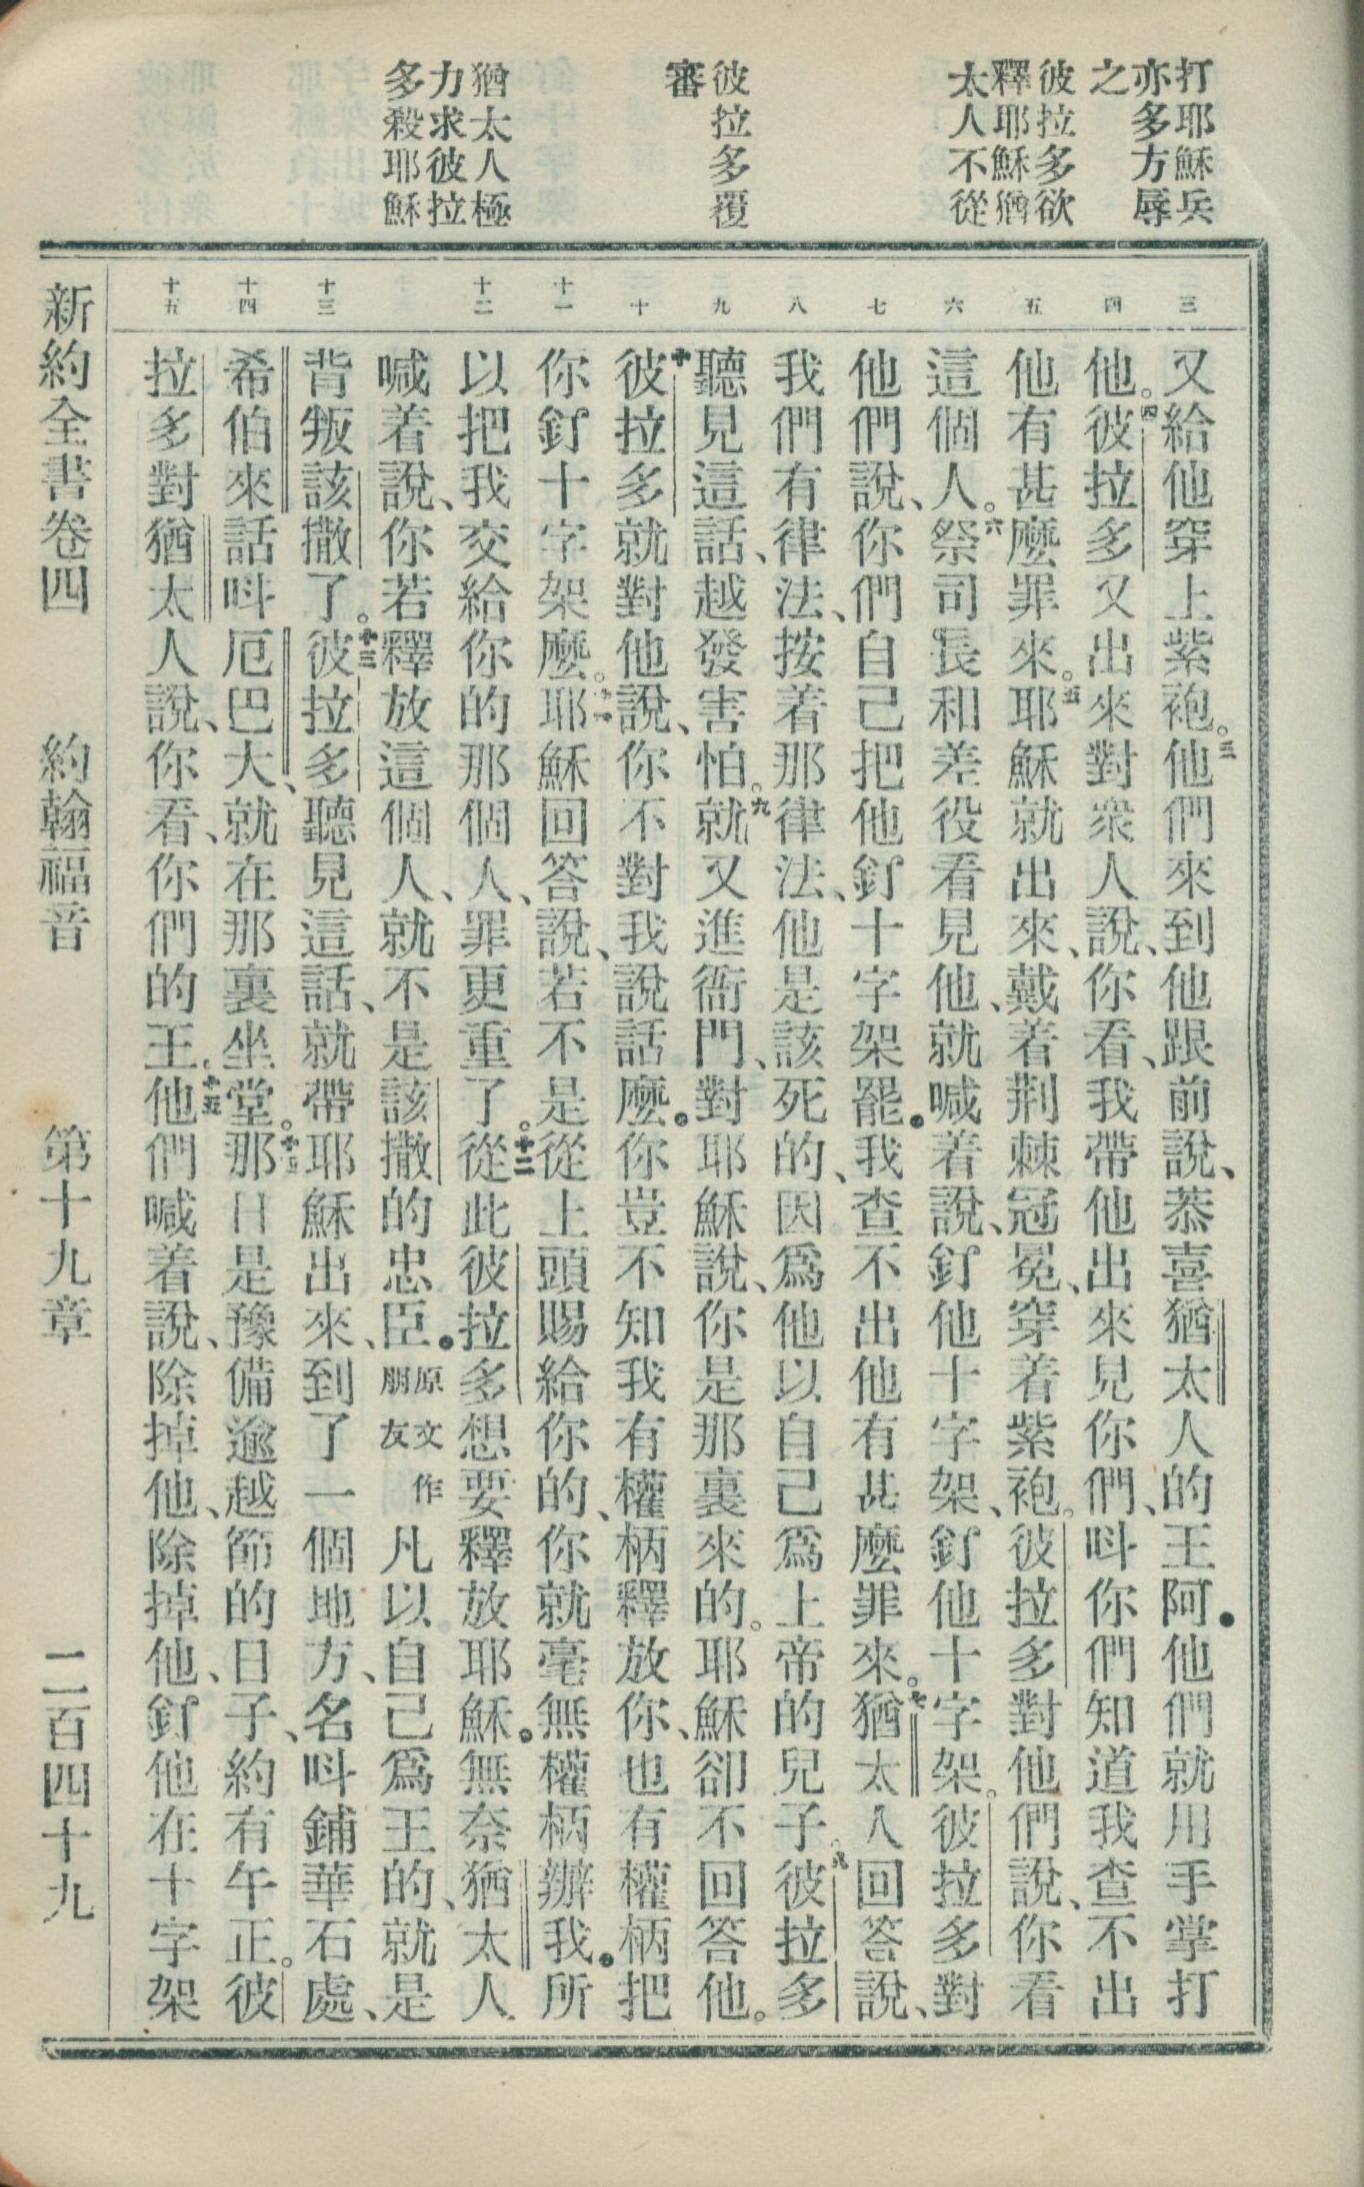 打耶穌兵
亦多方辱
之
彼拉多欲
釋耶穌猶
太人不從
彼拉多覆
審
猶太人極
力求彼拉
多殺耶穌
三
四
五
六
七
八
九
十
十一
十二
十三
十四
十五
又給他穿上紫袍。三他們來到他跟前說、恭喜猶太人的王阿。他們就用手掌打
他。四彼拉多又出來對衆人說、你看、我帶他出來見你們、呌你們知道我查不出
他有甚麽罪來。五耶穌就出來、戴着荆棘冠冕、穿着紫袍。彼拉多對他們說、你看
這個人。六祭司長和差役看見他、就喊着說、釘他十字架、釘他十字架。彼拉多對
他們說、你們自己把他釘十字架罷。我查不出他有甚麽罪來。七猶太人回答說、
我們有律法、按着那律法、他是該死的、因爲他以自己爲上帝的兒子。八彼拉多
聽見這話、越發害怕。九就又進衙門、對耶穌說、你是那裏來的。耶穌卻不回答他。
十彼拉多就對他說、你不對我說話麽。你豈不知我有權柄釋放你、也有權柄把
你釘十字架麽。十一耶穌回答說、若不是從上頭賜給你的、你就毫無權柄辦我。所
以把我交給你的那個人、罪更重了。十二從此彼拉多想要釋放耶穌。無奈猶太人
喊着說、你若釋放這個人、就不是該撒的忠臣。原文作朋友凡以自己爲王的、就是
背叛該撒了。十三彼拉多聽見這話、就帶耶穌出來、到了一個地方、名呌鋪華石處、
希伯來話呌厄巴大、就在那裏坐堂。十四那日是豫備逾越節的日子、約有午正。彼
拉多對猶太人說、你看、你們的王。十五他們喊着說、除掉他、除掉他、釘他在十字架
新約全書卷四 約翰福音 第十九章 二百四十九